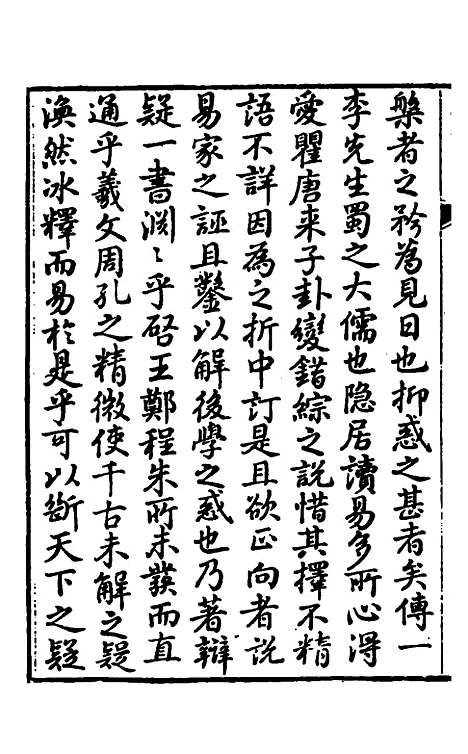 槃者之矜爲見日也抑惑之甚者矣傳一
李先生蜀之大儒也隐居讀易多所心淂
愛瞿唐来子卦變錯綜之說惜其擇不精
語不詳因為之折中訂是且欲正向者說
易家之誣且鑿以解後學之惑也乃著辯
疑一書渊〻乎啓王鄭程朱所未發而直
通乎羲文周孔之精微使千古未解之疑
渙然冰釋而易於是乎可以斷天下之疑